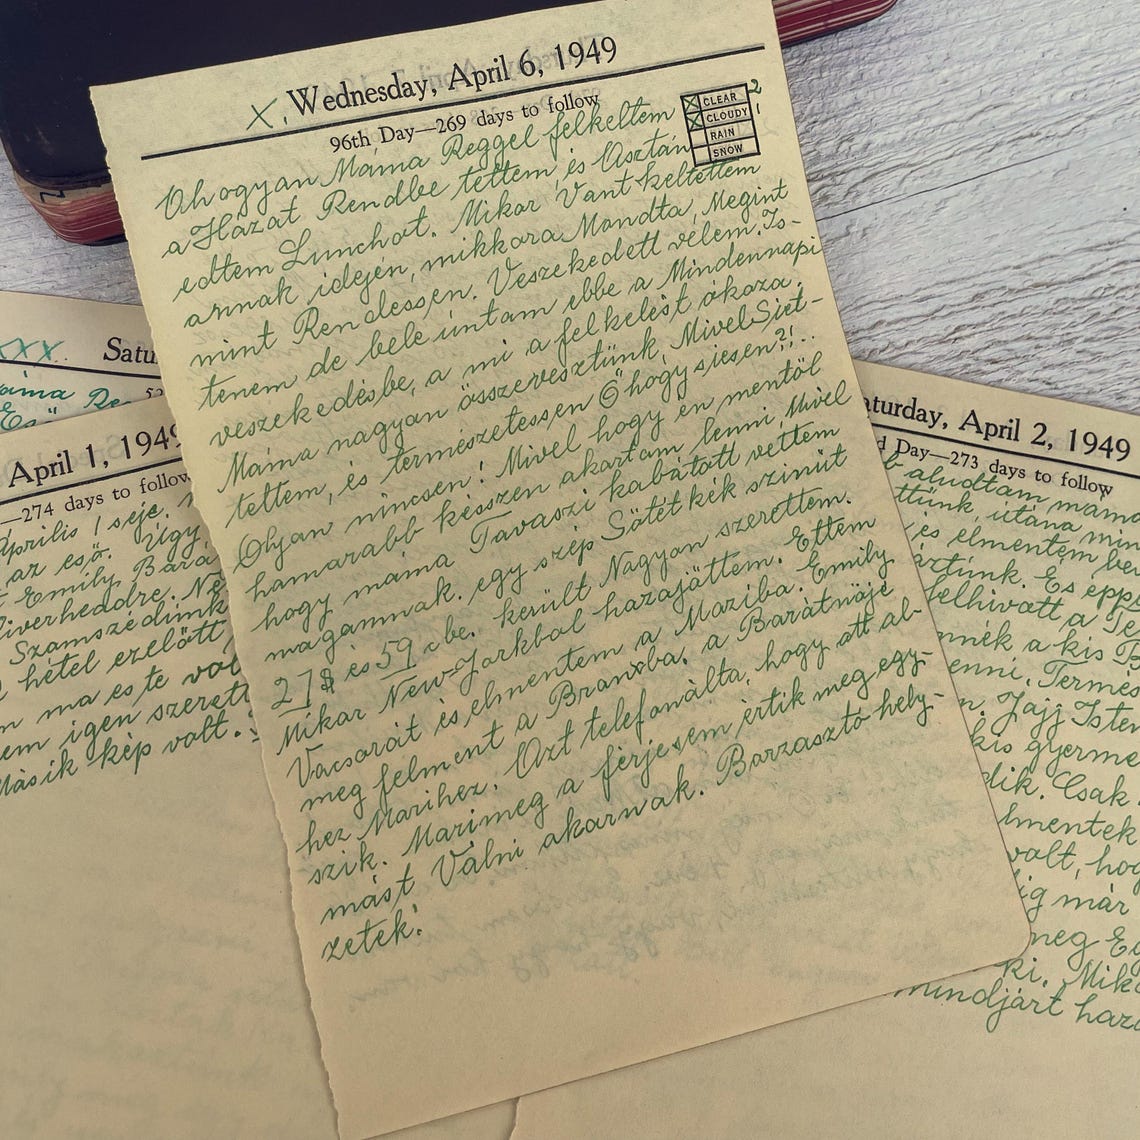 X. Wednesday, April 6, 1949
96th Day—269 days to follow
CLEAR 2
CLOUDY 1
RAIN
SNOW
Ahogyan Mama Reggel felkeltem
a Házat Rendbe tettem és Asztán
edtem Lunchot. Mikor Vant keltettem
annak idején, mikkora Mondta, Megint
mint Rendessen. Veszekedett vélem. Is-
tenem de bele úntam ebbe a Mindennapi
veszekedésbe, a mi a felkelést okoza.
Máma nagyon összevesztünk, Mivel Siet-
tettem, és természetessen Ő hogy siesen?!..
Olyan nincsen! Mivel hogy én mentöl
hamarabb készen akartam lenni, Mivel
hogy máma Tavaszi kabátott vettem
magamnak. egy szép Sötét kék szinüt
27$ és 59 c be. került Nagyon szerettem.
Mikor New-Yorkbol hazajöttem. Ettem
Vacsorát és elmentem a Maziba. Emily
meg felment a Branxba. a Barátnöje
hez Marihez. Azt telefonálta, hogy ott al-
szik. Mari meg a férje sem értik meg egy-
mást Válni akarnak. Barzasztó hely-
zetek!
XXX. Satu
April 1, 1949
—274 days to follow
Április 1 seje.
az eső. Úgy
Emily Bará
Riverheadre. Ne
Szamszédünk
hétel ezelött
ma es te vol
em igen szerett
Másik kép volt.
Saturday, April 2, 1949
d Day—273 days to follow
aludtam mama
ttünk, utána min
es elmentem be
ártunk. Es epp
felhivott a Te
nnék a kis
enni. Termés
n. Jajj Isten
kis gyerme
dik. Csak.
lmentek
volt, hog
ig már
meg E
ki. Mik
mindjárt haza